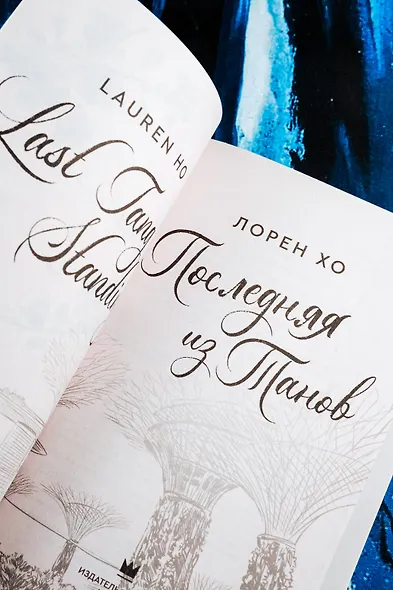 LAUREN HO
Last Tang
Standi
ЛОРЕН ХО
Последняя
из Танов
ИЗДАТЕЛЬ